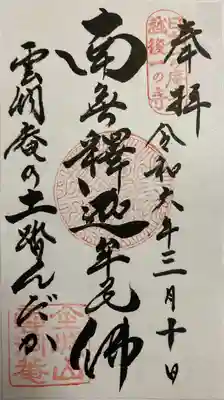 奉拝
越後一の寺
令和六年三月十日
南無釋迦牟尼佛
雲洞庵の土踏んだか
金城山
雲洞庵